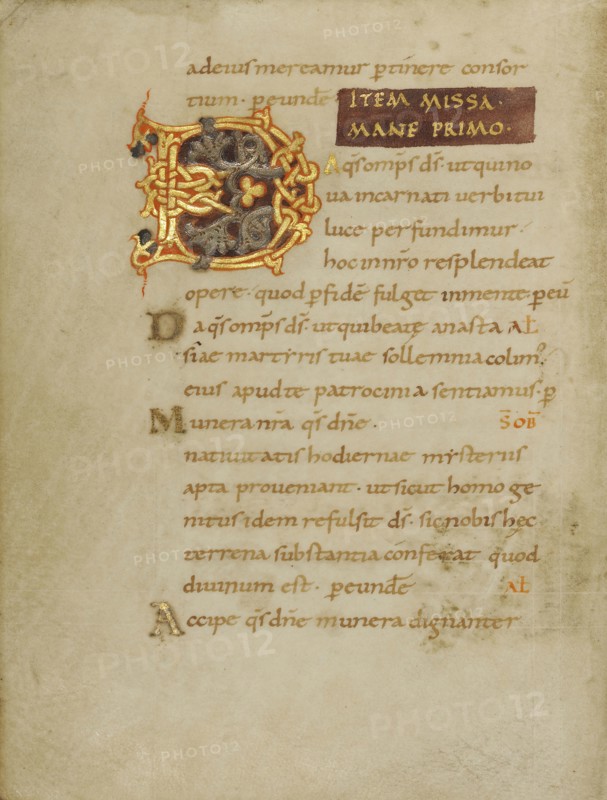 ad eius mereamur p̄tinere consor
tium · p eundē
ITEM MISSA ·
MANE PRIMO ·
DA qs̄ omp̄s ds̄ · ut qui no
ua incarnati uerbi tui
luce perfundimur ·
hoc in nr̄o resplendeat
opere · quod p̄ fidē fulget in mente · p eū
Da qs̄ omp̄s ds̄ · ut qui beatę anastа AL̄
siae martyris tuae sollemnia colim᷒ ·
eius apud te patrocinia sentiamus · p̄
Munera nr̄a qs̄ dn̄e · S̄ OB̄
natiuitatis hodiernae mysteriis
apta proueniant · ut sicut homo ge
nitus idem refulsit ds̄ · sic nobis hęc
terrena substantia conferat quod
diuinum est · p eundē AL̄
Accipe qs̄ dn̄e munera dignanter
PHOTO12